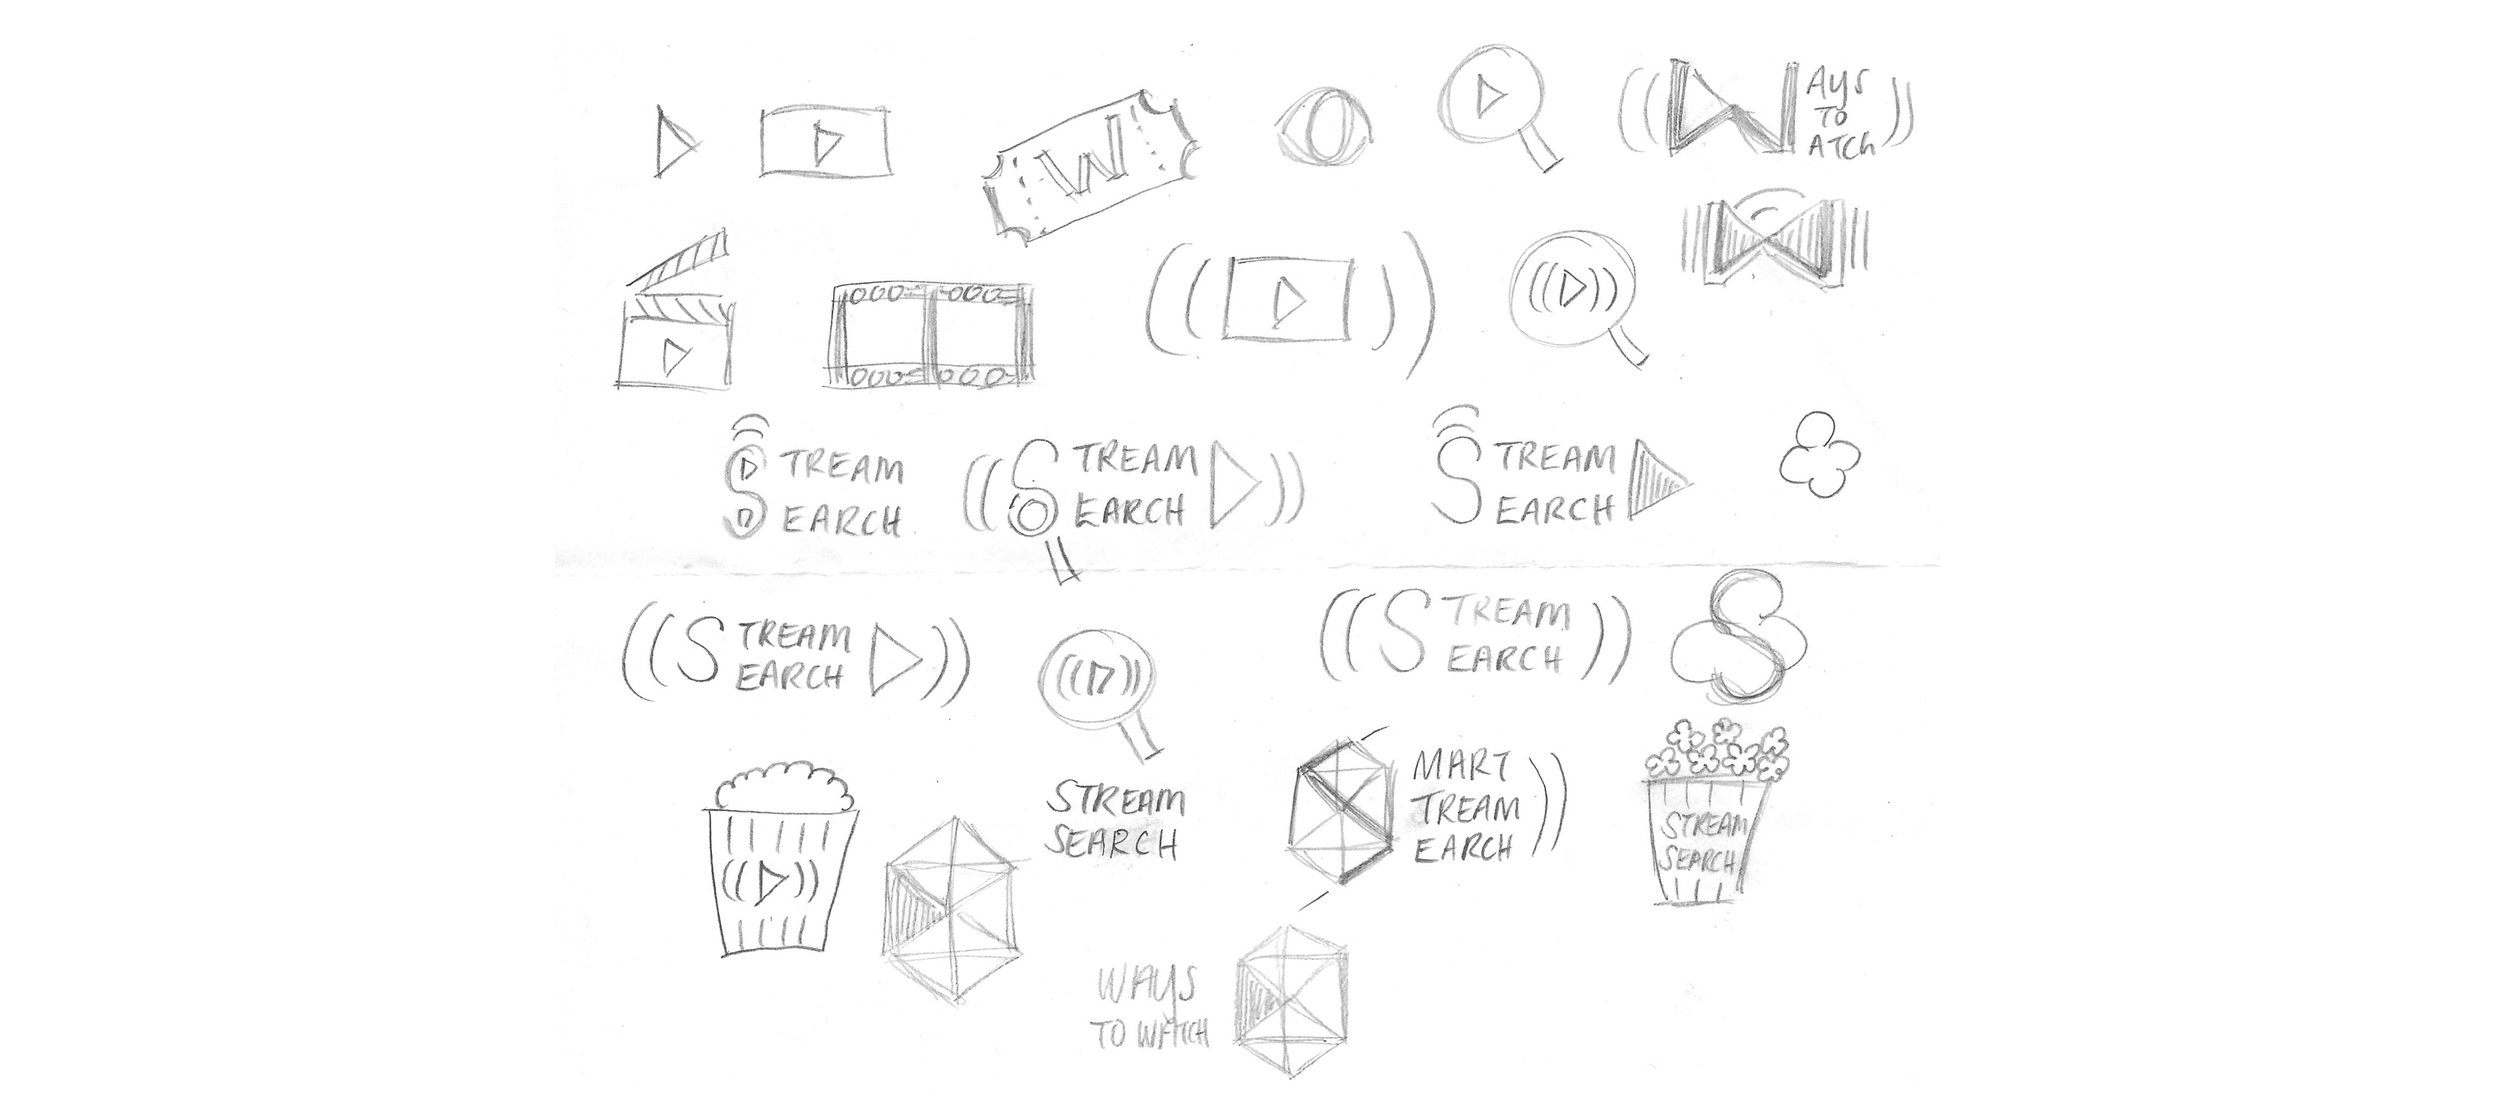 W
W AYS
TO
ATCh
STREAM
SEARCH
STREAM
EARCH
STREAM
EARCH
STREAM
EARCH
STREAM
EARCH
S
STREAM
SEARCH
MART
TREAM
EARCH
STREAM
SEARCH
WAYS
TO WATCH